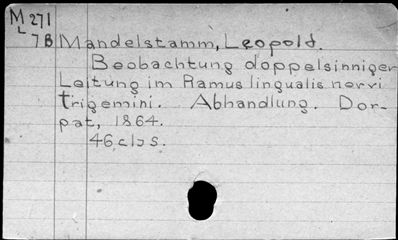 M 271
L
7B Mandelstamm, Leopold.
Beobachtung doppelsinniger
Leitung im Ramus lingualis nervi
trigemini. Abhandlung. Dor-
pat, 1864.
46